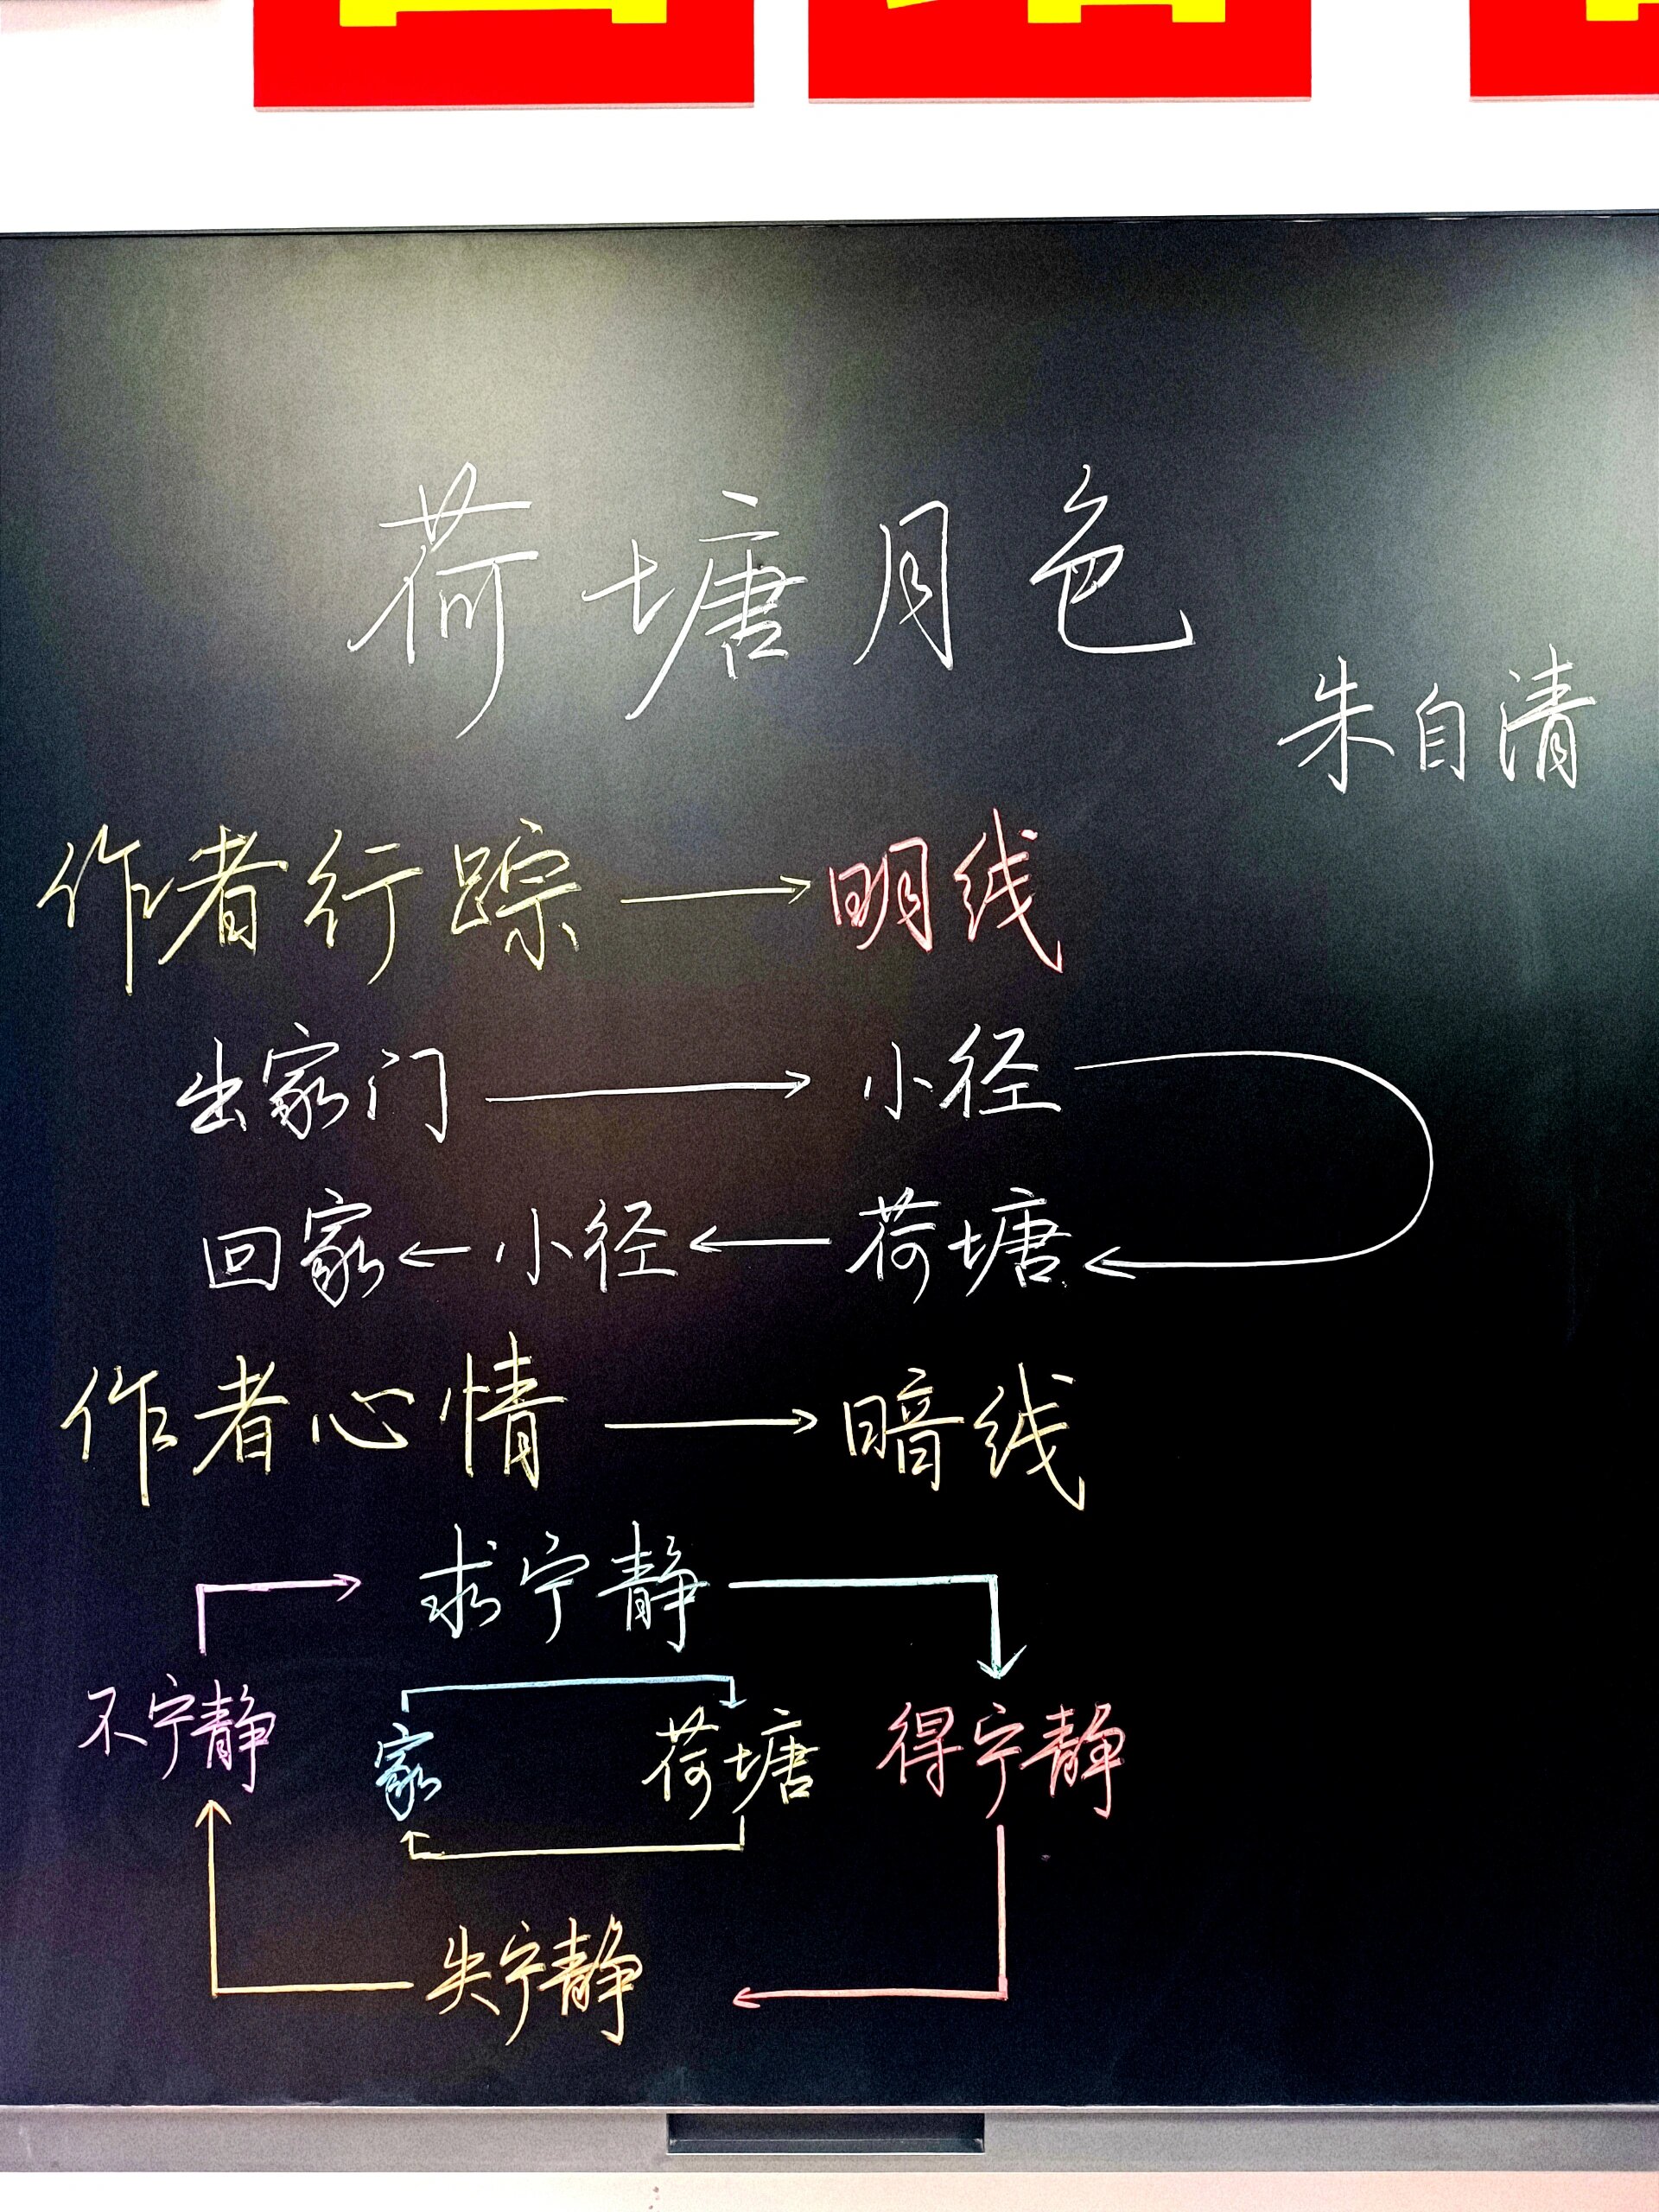 荷塘月色
朱自清
作者行踪→明线
出家门→小径
回家←小径←荷塘
作者心情→暗线
求宁静
不宁静 家 荷塘 得宁静
失宁静